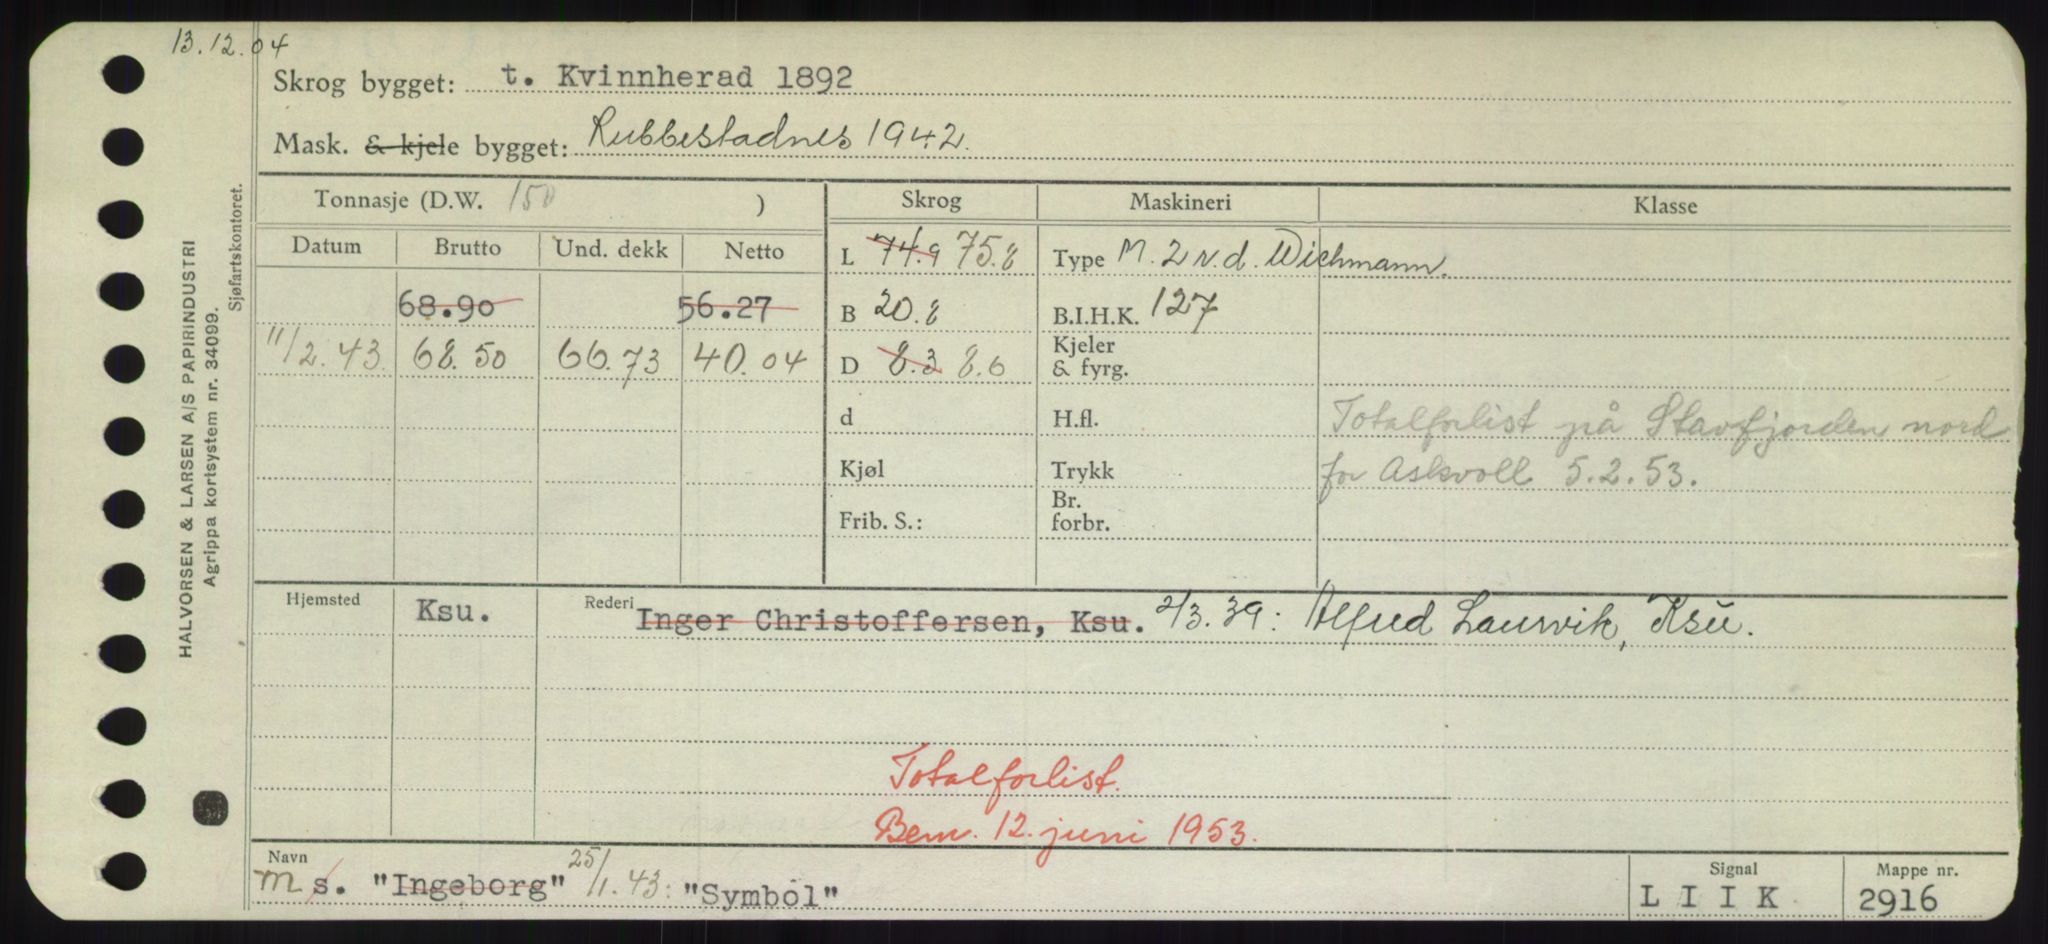 13.12.04
Skrog bygget: t. Kvinnherad 1892
Mask. & kjele bygget: Rubbestadnes 1942.
Tonnasje (D.W. 150 ) Skrog Maskineri Klasse
Datum Brutto Und. dekk Netto L 74.9 75.8 Type M. 2 v.d. Wichmann.
68.90 56.27 B 20.8 B.I.H.K. 127
11/2.43. 68.50 66.73 40.04 D 8.3 8.6 Kjeler & fyrg.
d H.fl. Totalforlist på Stavfjorden nord
Kjøl Trykk for Askvoll 5.2.53.
Frib. S.: Br. forbr.
Hjemsted Ksu. Rederi Inger Christoffersen, Ksu. 2/3.39: Alfred Laurvik, Ksu.
Totalforlist.
Bem. 12. juni 1953.
Navn Signal Mappe nr.
m s. "Ingeborg" 25/1.43: "Symbol" L I I K 2916
HALVORSEN & LARSEN A/S PAPIRINDUSTRI
Agrippa kortsystem nr. 34099.
Sjøfartskontoret.